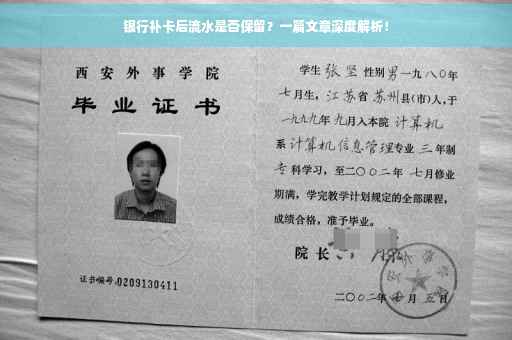 银行补卡后流水是否保留？一篇文章深度解析！
西安外事学院
毕业证书
证书编号:0209130411
学生 张坚 性别男一九八〇年
七月生，江苏省苏州县(市)人,于
一九九九年九月入本院 计算机
系计算机信息管理专业 三 年制
专科学习，至二〇〇二年 七月修业
期满，学完教学计划规定的全部课程，
成绩合格，准予毕业。
院长
二〇〇二年 月 五日